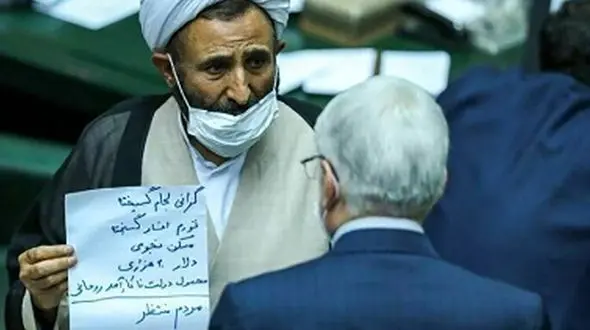 گرانی لجام گسیخته
تورم افسار گسیخته
مسکن نجومی
دلار ۳۰ هزاری
محصول دولت ناکارآمد روحانی
مردم منتظر